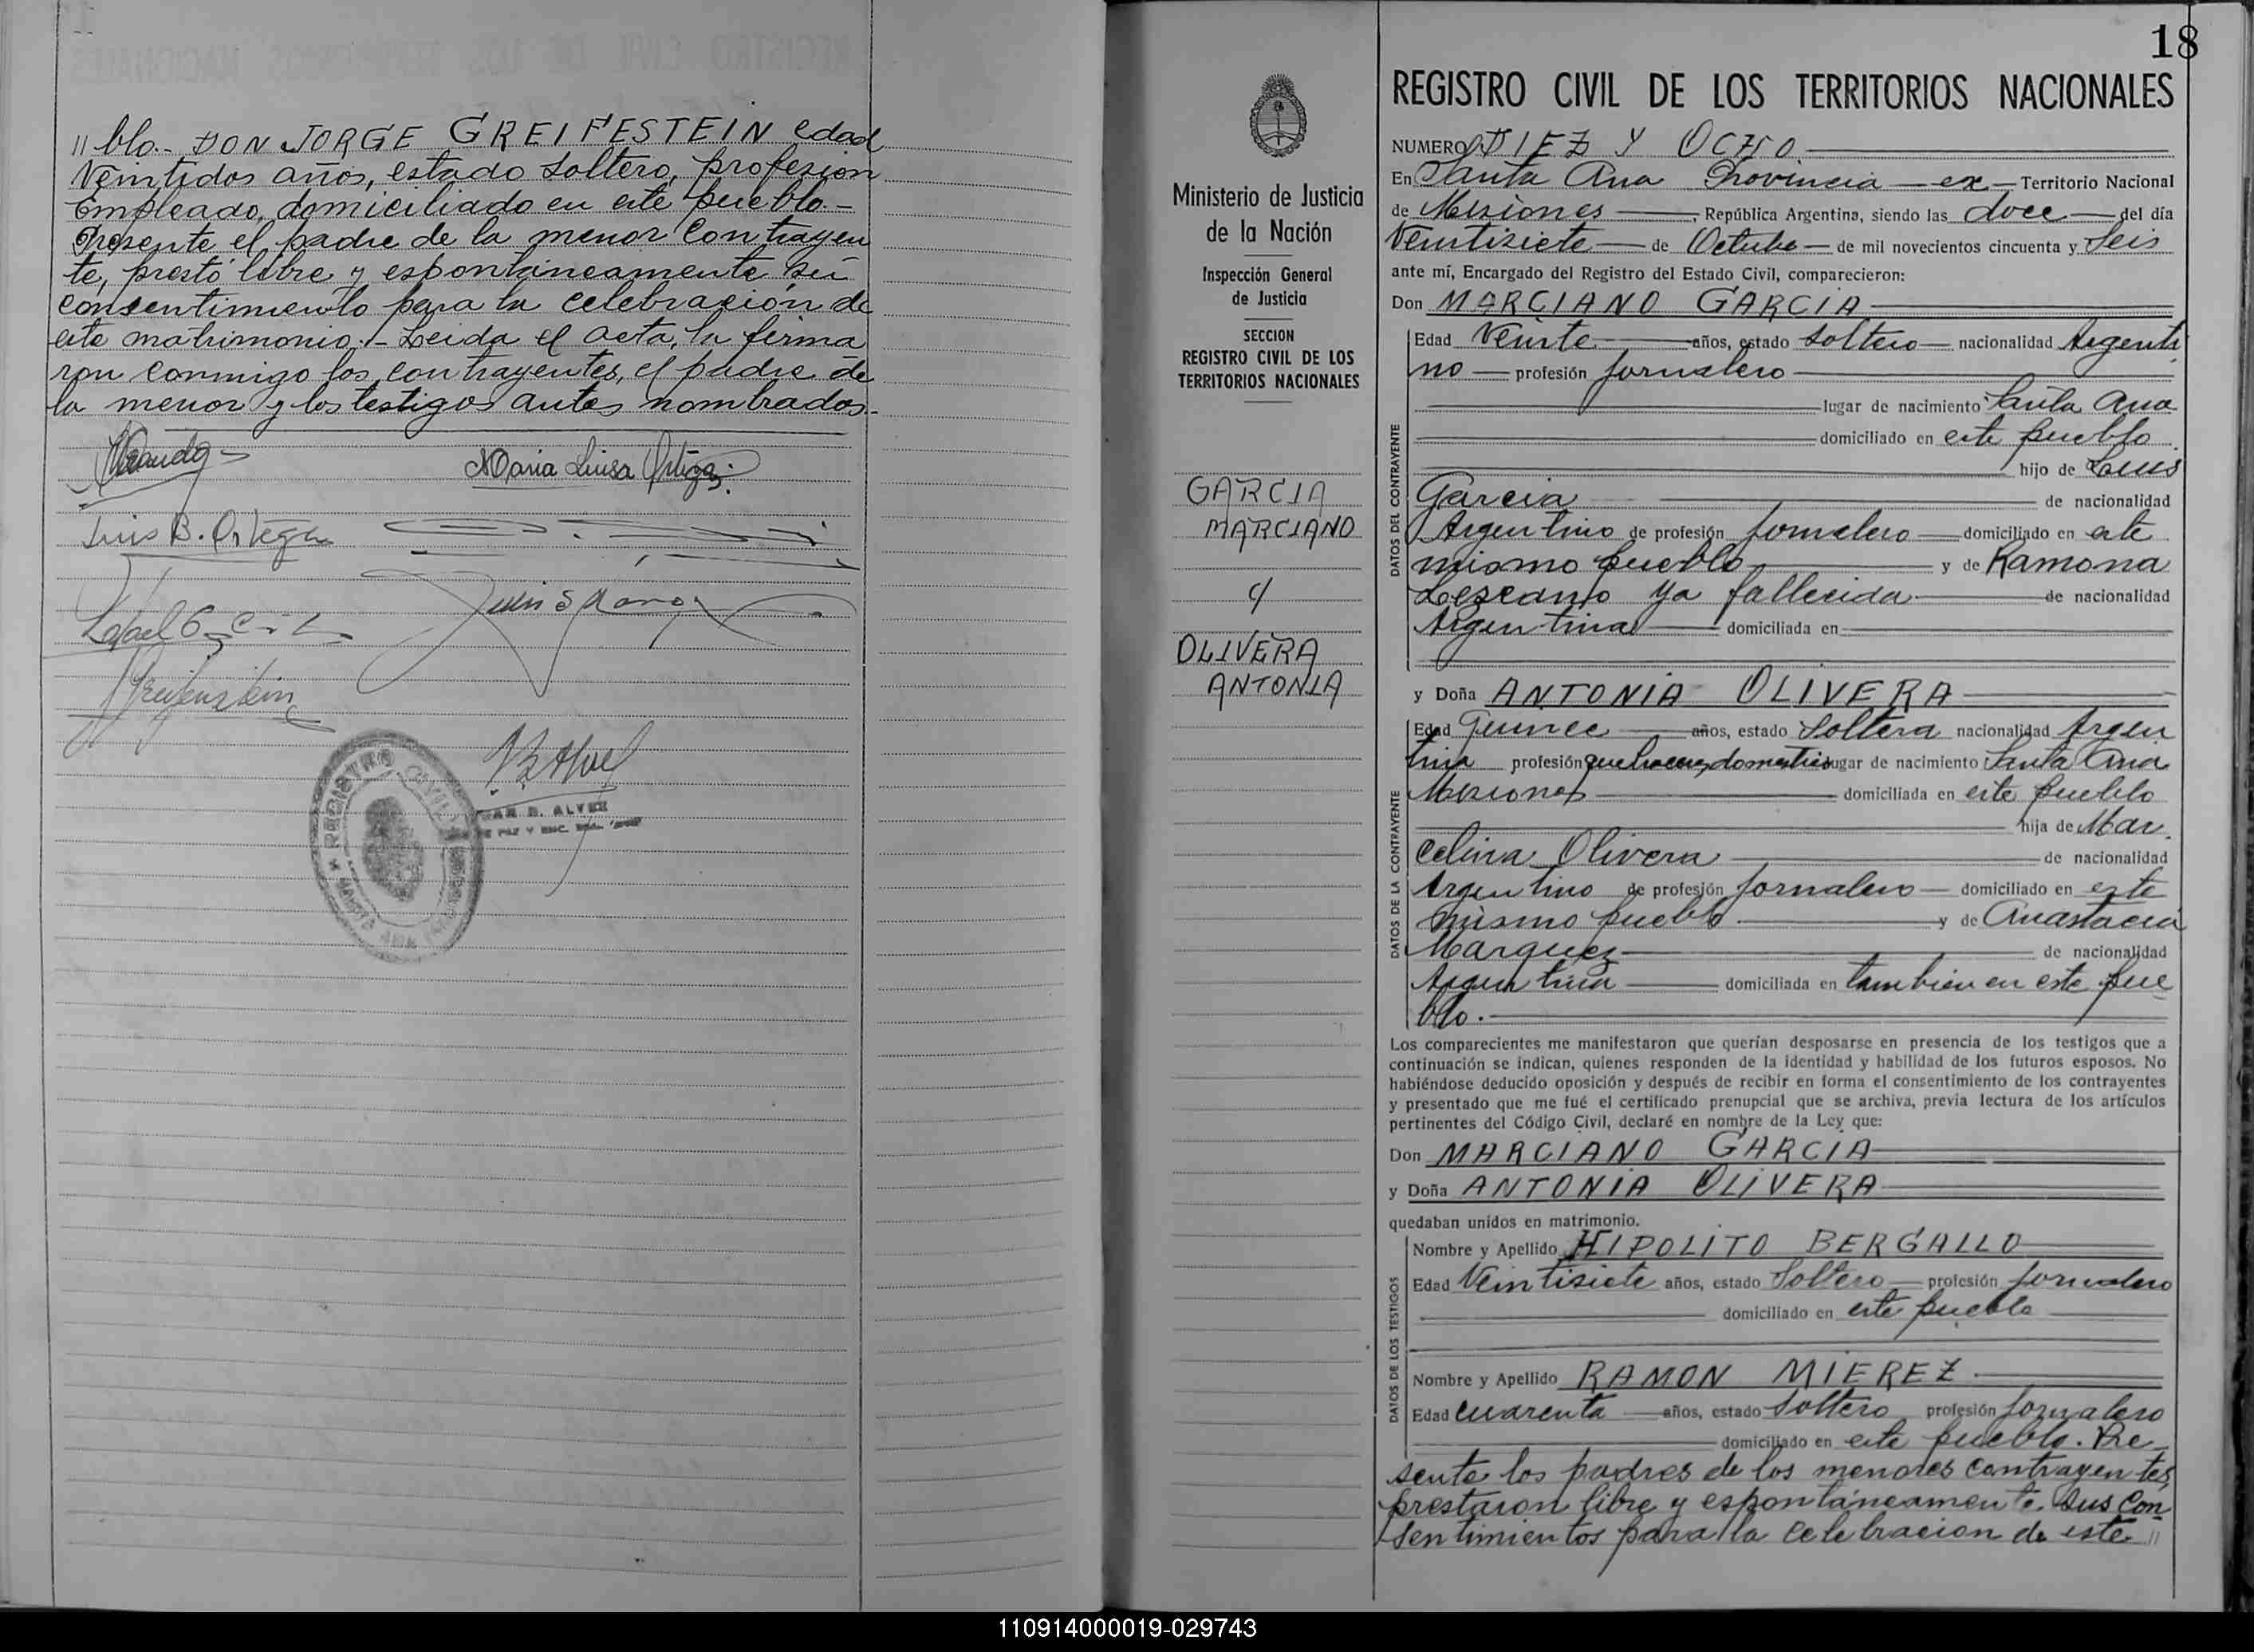 "blo.- DON JORGE GREIFESTEIN edad
Veintidos años, estado soltero, profesion
Empleado, domiciliado en este pueblo.-
Presente el padre de la menor contrayen
te, prestó libre y espontáneamente su
consentimiento para la celebración de
este matrimonio.- Leida el acta, la firma
ron conmigo los contrayentes, el padre de
la menor y los testigos antes nombrados.-
Maria Luisa Ortega
Luis B. Ortega
Greifenstein
REGISTRO CIVIL
SANTA ANA
B. ALVEZ
DE PAZ Y ENC.
18
Ministerio de Justicia
de la Nación
Inspección General
de Justicia
SECCION
REGISTRO CIVIL DE LOS
TERRITORIOS NACIONALES
GARCIA
MARCIANO
c/
OLIVERA
ANTONIA
REGISTRO CIVIL DE LOS TERRITORIOS NACIONALES
NUMERO DIEZ Y OCHO
En Santa Ana Provincia - ex - Territorio Nacional
de Misiones, República Argentina, siendo las doce del día
Veintisiete de Octubre de mil novecientos cincuenta y Seis
ante mí, Encargado del Registro del Estado Civil, comparecieron:
Don MARCIANO GARCIA
DATOS DEL CONTRAYENTE
Edad Veinte años, estado soltero nacionalidad Argenti
no profesión jornalero
lugar de nacimiento Santa Ana
domiciliado en este pueblo
hijo de Luis
Garcia de nacionalidad
Argentino de profesión jornalero domiciliado en este
mismo pueblo y de Ramona
Lescano ya fallecida de nacionalidad
Argentina domiciliada en
y Doña ANTONIA OLIVERA
DATOS DE LA CONTRAYENTE
Edad Quince años, estado Soltera nacionalidad Argen
tina profesión quehaceres domesticos lugar de nacimiento Santa Ana
Misiones domiciliada en este pueblo
hija de Mar
celina Olivera de nacionalidad
Argentino de profesión jornalero domiciliado en este
mismo pueblo y de Anastacia
Marquez de nacionalidad
Argentina domiciliada en tambien en este pue
blo.
Los comparecientes me manifestaron que querían desposarse en presencia de los testigos que a
continuación se indican, quienes responden de la identidad y habilidad de los futuros esposos. No
habiéndose deducido oposición y después de recibir en forma el consentimiento de los contrayentes
y presentado que me fué el certificado prenupcial que se archiva, previa lectura de los artículos
pertinentes del Código Civil, declaré en nombre de la Ley que:
Don MARCIANO GARCIA
y Doña ANTONIA OLIVERA
quedaban unidos en matrimonio.
DATOS DE LOS TESTIGOS
Nombre y Apellido HIPOLITO BERGALLO
Edad Veintisiete años, estado Soltero profesión jornalero
domiciliado en este pueblo
Nombre y Apellido RAMON MIEREZ.
Edad cuarenta años, estado soltero profesión jornalero
domiciliado en este pueblo. Pre
sente los padres de los menores contrayentes,
prestaron libre y espontáneamente sus con
sentimientos para la celebracion de este "
110914000019-029743